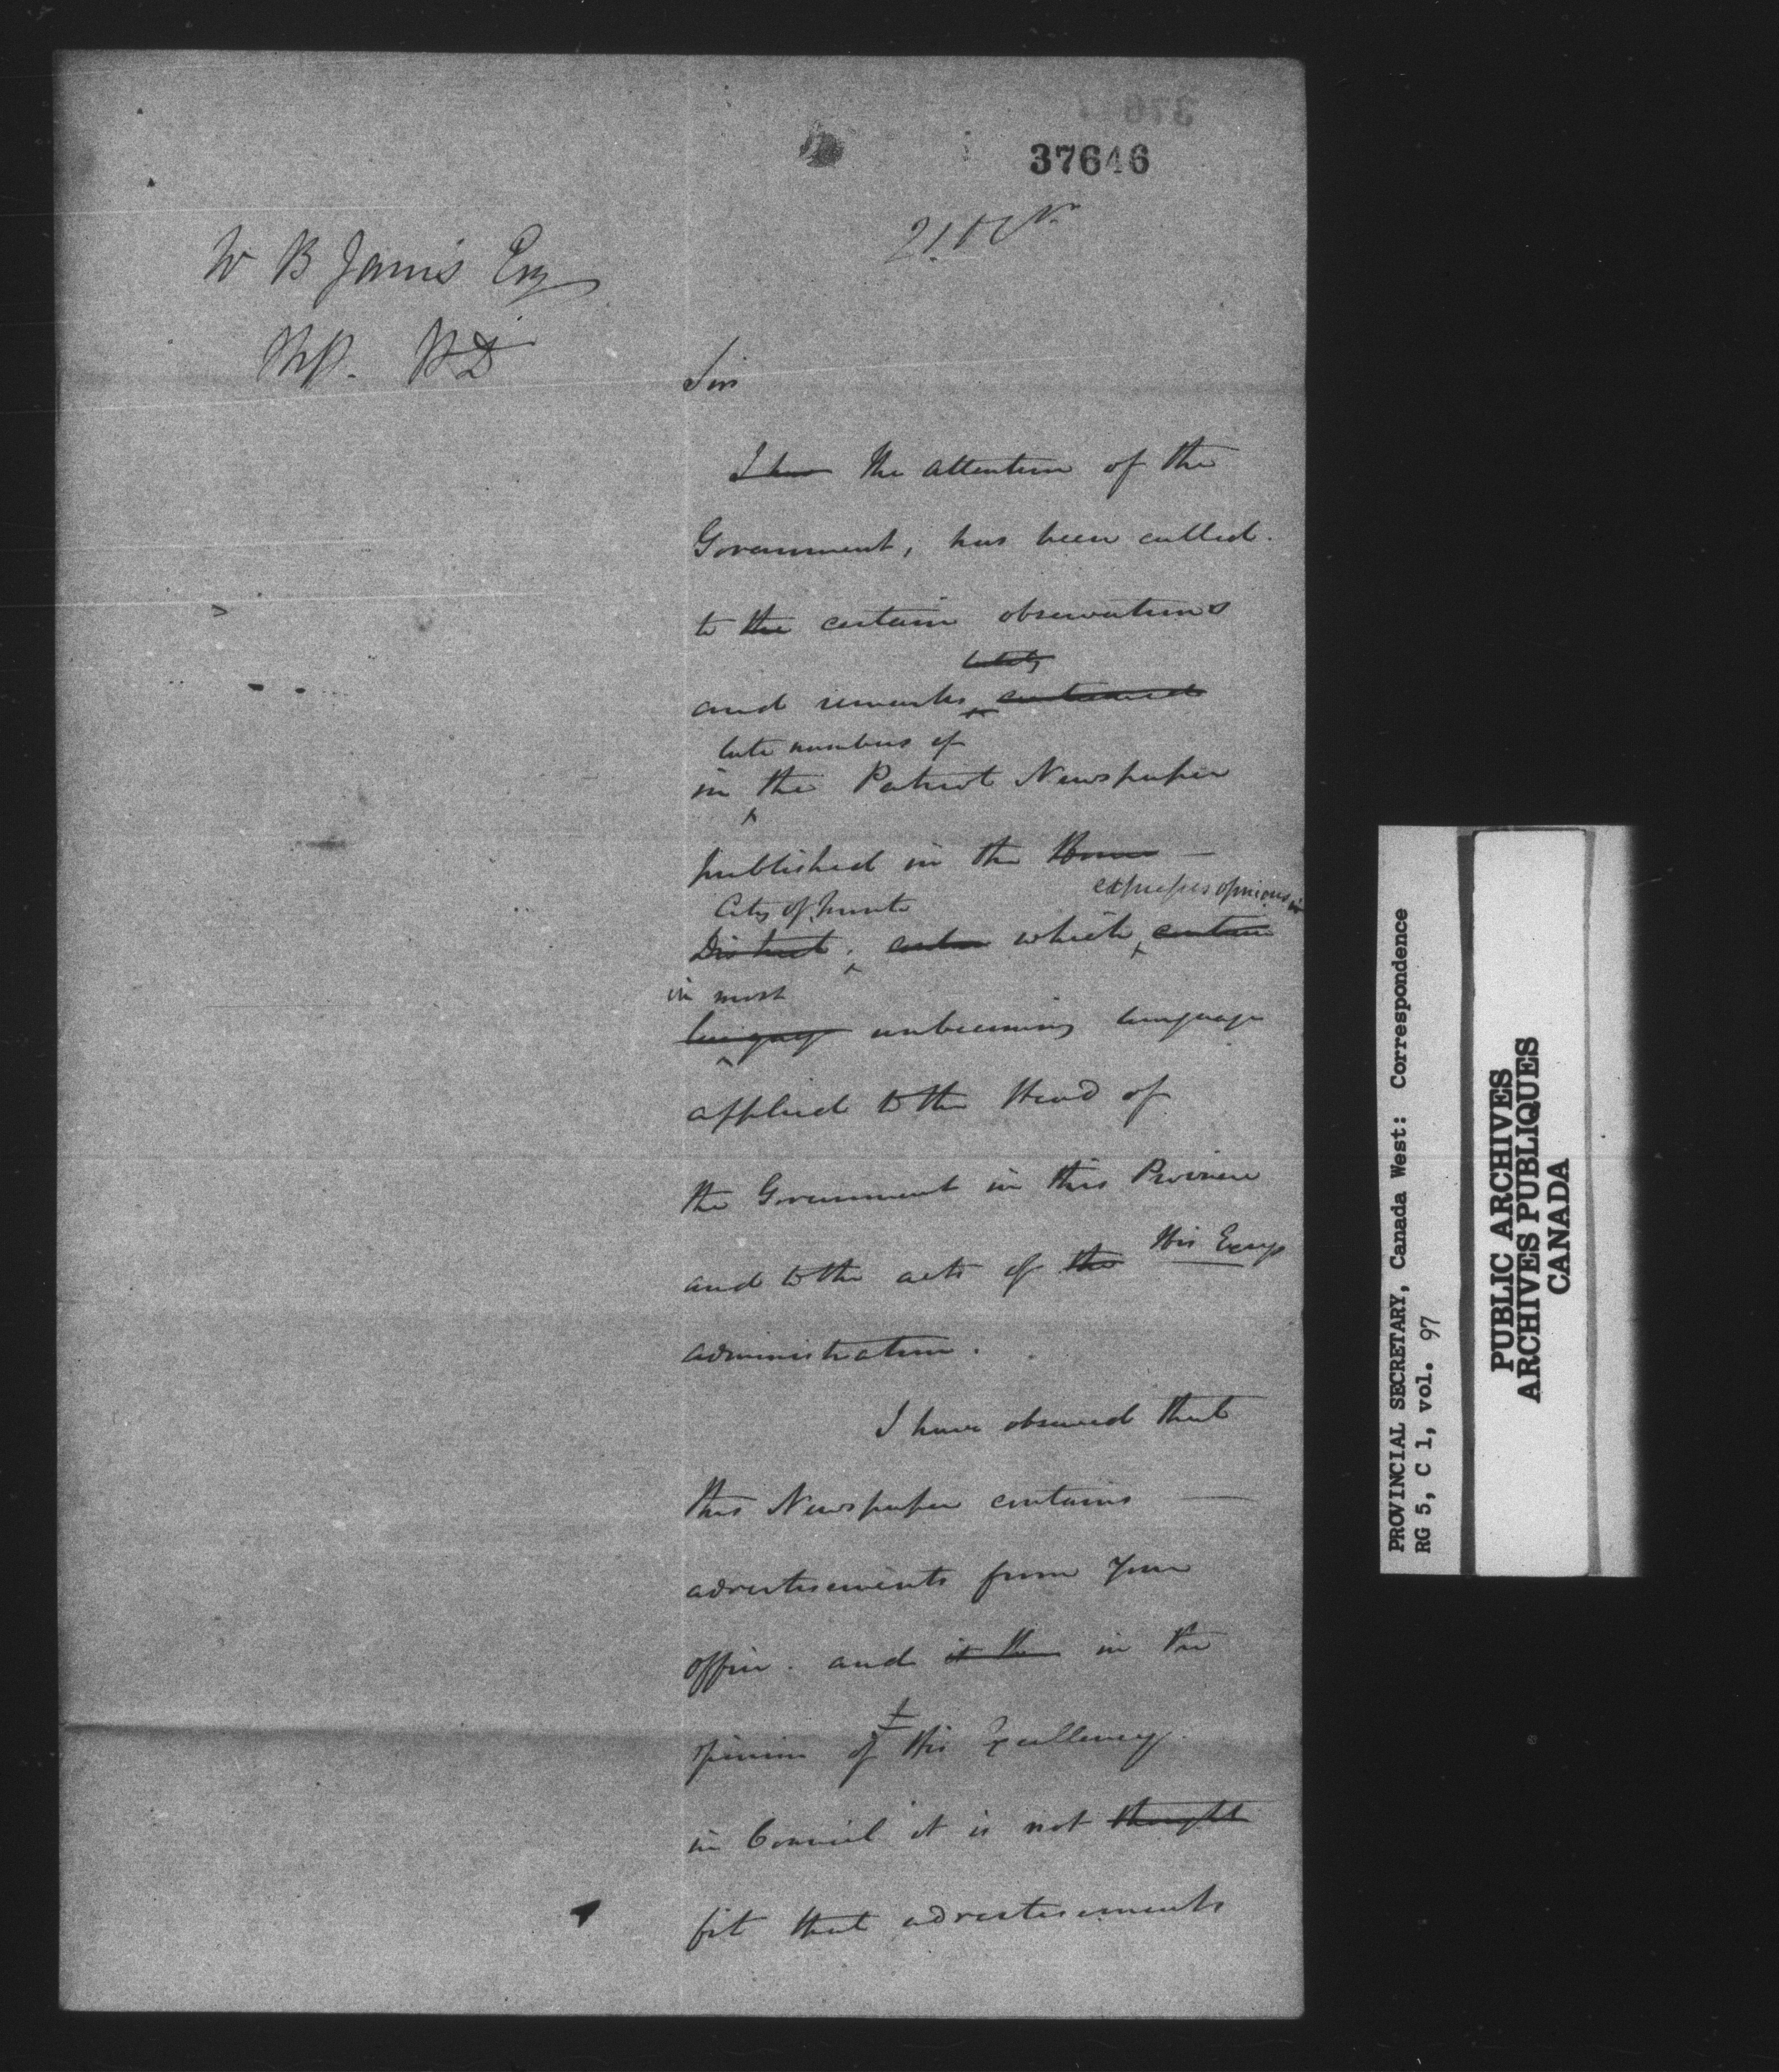 37646
W B Jarvis Esq
H D
Sir
I have the attention of the
Government, has been called
to the certain observations
lately
and remarks contained
late numbers of
in the Patriot Newspaper
published in the Home —
City of Toronto
expresses opinions in
District, which contain
in most
language unbecoming language
applied to the Head of
the Government in this Province
and to the acts of the His Excys
administration.
I have observed that
this Newspaper contains —
advertisements from your
office. and it then in the
opinion of His Excellency
in Council it is not thought
fit that advertisements
PROVINCIAL SECRETARY, Canada West: Correspondence
RG 5, C 1, vol. 97
PUBLIC ARCHIVES
ARCHIVES PUBLIQUES
CANADA